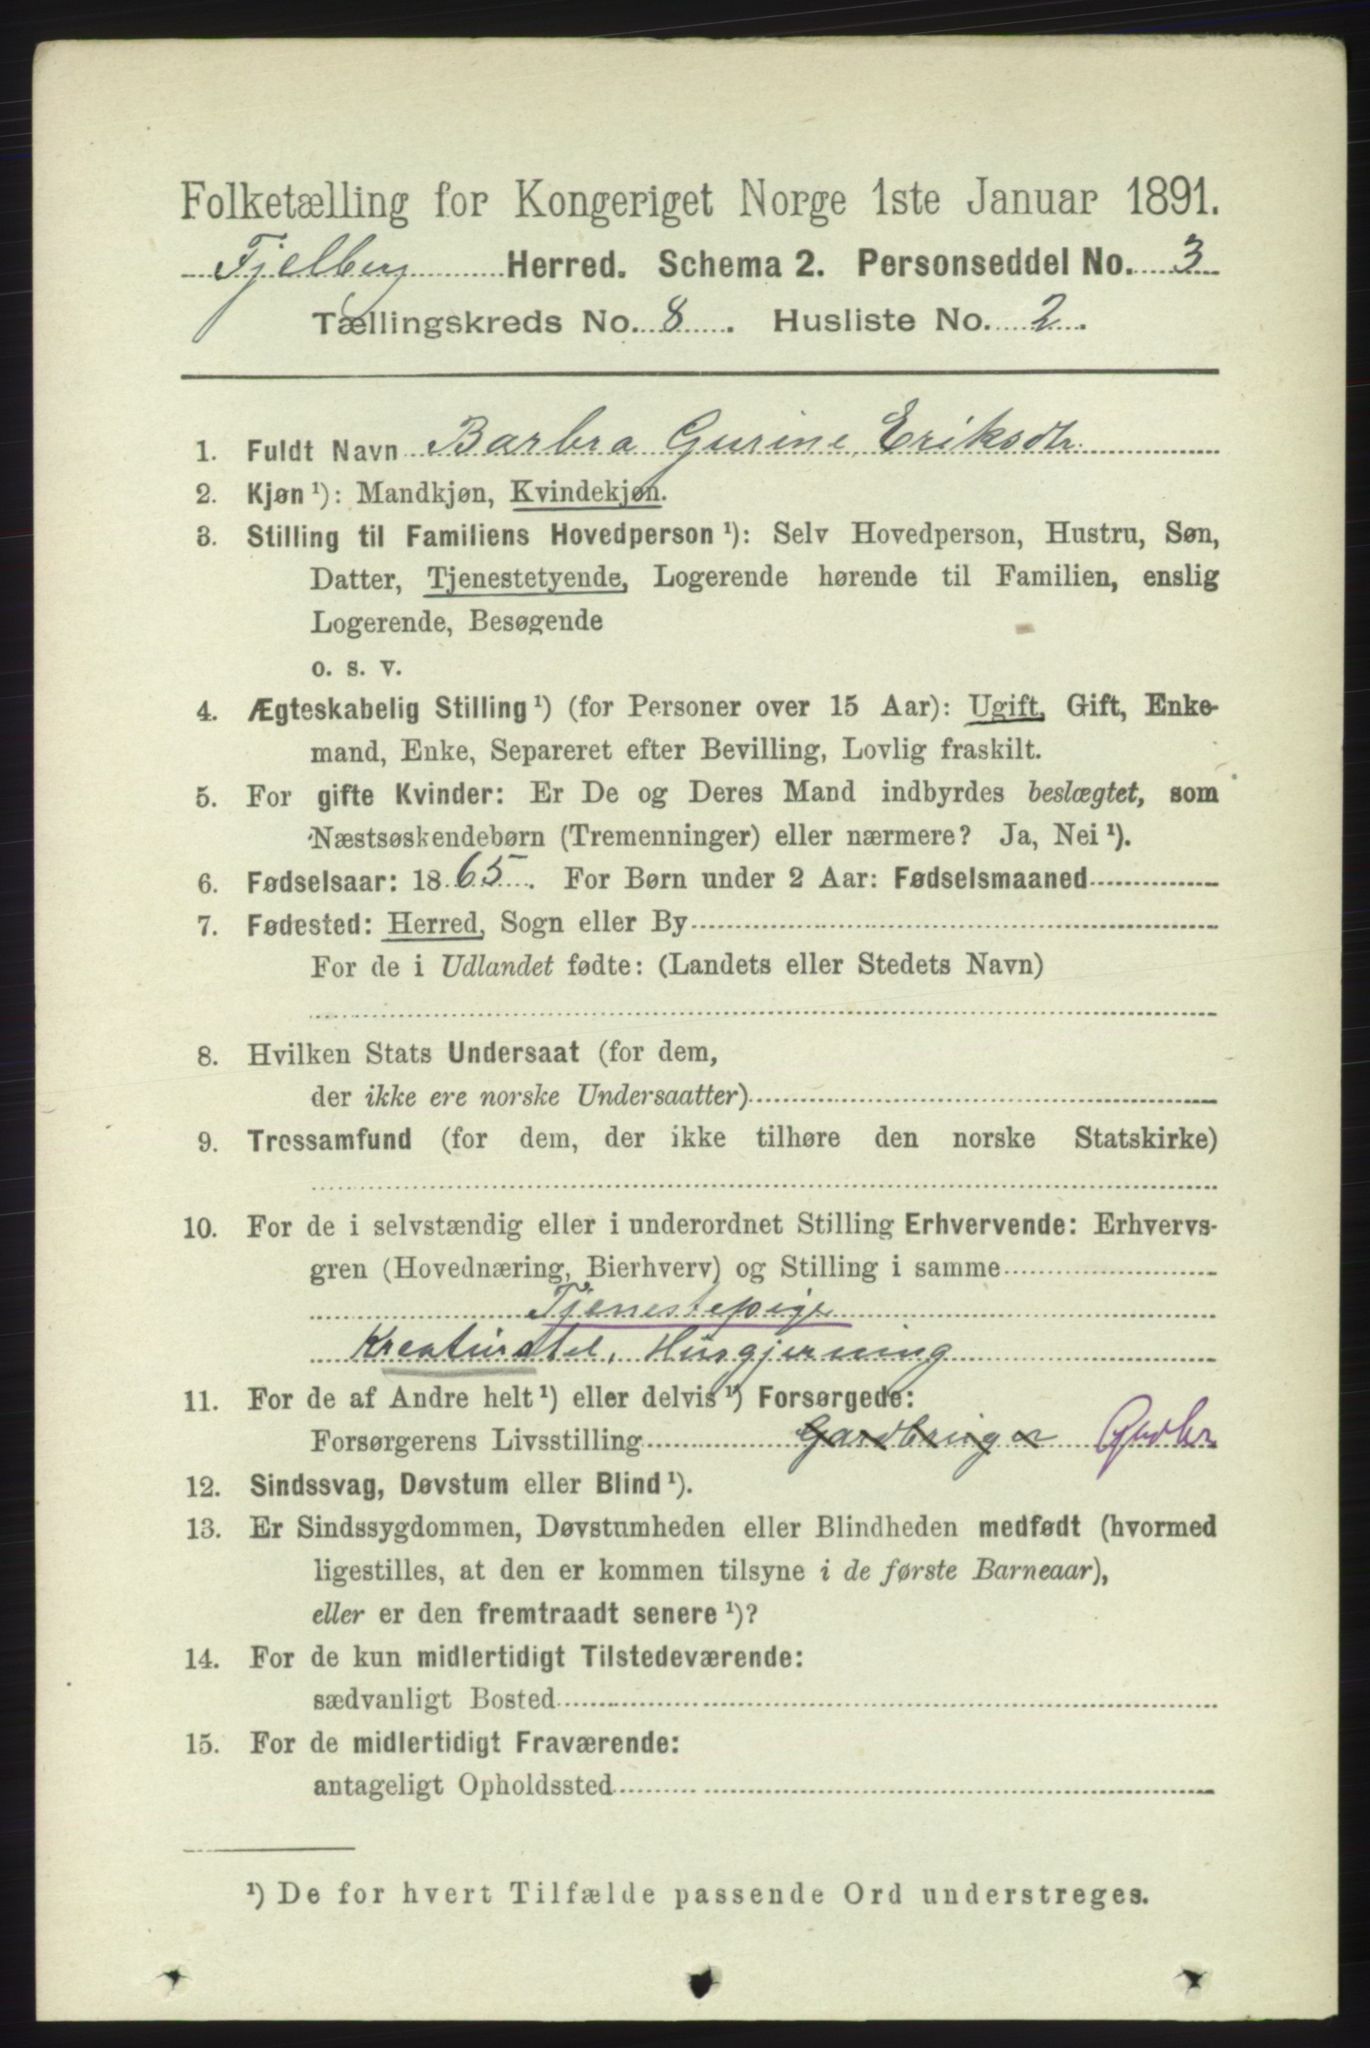 Folketælling for Kongeriget Norge 1ste Januar 1891.
Fjelberg Herred. Schema 2. Personseddel No. 3
Tællingskreds No. 8. Husliste No. 2.
1. Fuldt Navn Barbra Gurine Eriksdtr.
2. Kjøn¹): Mandkjøn, Kvindekjøn.
3. Stilling til Familiens Hovedperson¹): Selv Hovedperson, Hustru, Søn,
Datter, Tjenestetyende, Logerende hørende til Familien, enslig
Logerende, Besøgende
o. s. v.
4. Ægteskabelig Stilling¹) (for Personer over 15 Aar): Ugift, Gift, Enke-
mand, Enke, Separeret efter Bevilling, Lovlig fraskilt.
5. For gifte Kvinder: Er De og Deres Mand indbyrdes beslægtet, som
Næstsøskendebørn (Tremenninger) eller nærmere? Ja, Nei¹).
6. Fødselsaar: 1865. For Børn under 2 Aar: Fødselsmaaned
7. Fødested: Herred, Sogn eller By
For de i Udlandet fødte: (Landets eller Stedets Navn)
8. Hvilken Stats Undersaat (for dem,
der ikke ere norske Undersaatter)
9. Trossamfund (for dem, der ikke tilhøre den norske Statskirke)
10. For de i selvstændig eller i underordnet Stilling Erhvervende: Erhvervs-
gren (Hovednæring, Bierhverv) og Stilling i samme
Tjenestepige
Kreaturstel, Husgjerning
11. For de af Andre helt¹) eller delvis¹) Forsørgede:
Forsørgerens Livsstilling Gardbruger Gbr
12. Sindssvag, Døvstum eller Blind¹).
13. Er Sindssygdommen, Døvstumheden eller Blindheden medfødt (hvormed
ligestilles, at den er kommen tilsyne i de første Barneaar),
eller er den fremtraadt senere¹)?
14. For de kun midlertidigt Tilstedeværende:
sædvanligt Bosted
15. For de midlertidigt Fraværende:
antageligt Opholdssted
¹) De for hvert Tilfælde passende Ord understreges.